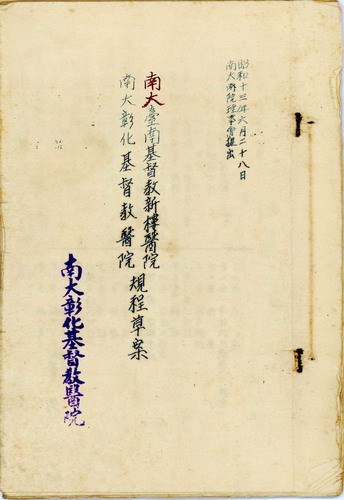 昭和十三年六月二十八日
南大病院理事會提出
南大臺南基督教新樓醫院
南大彰化基督教醫院 規程草案
南大彰化基督教醫院